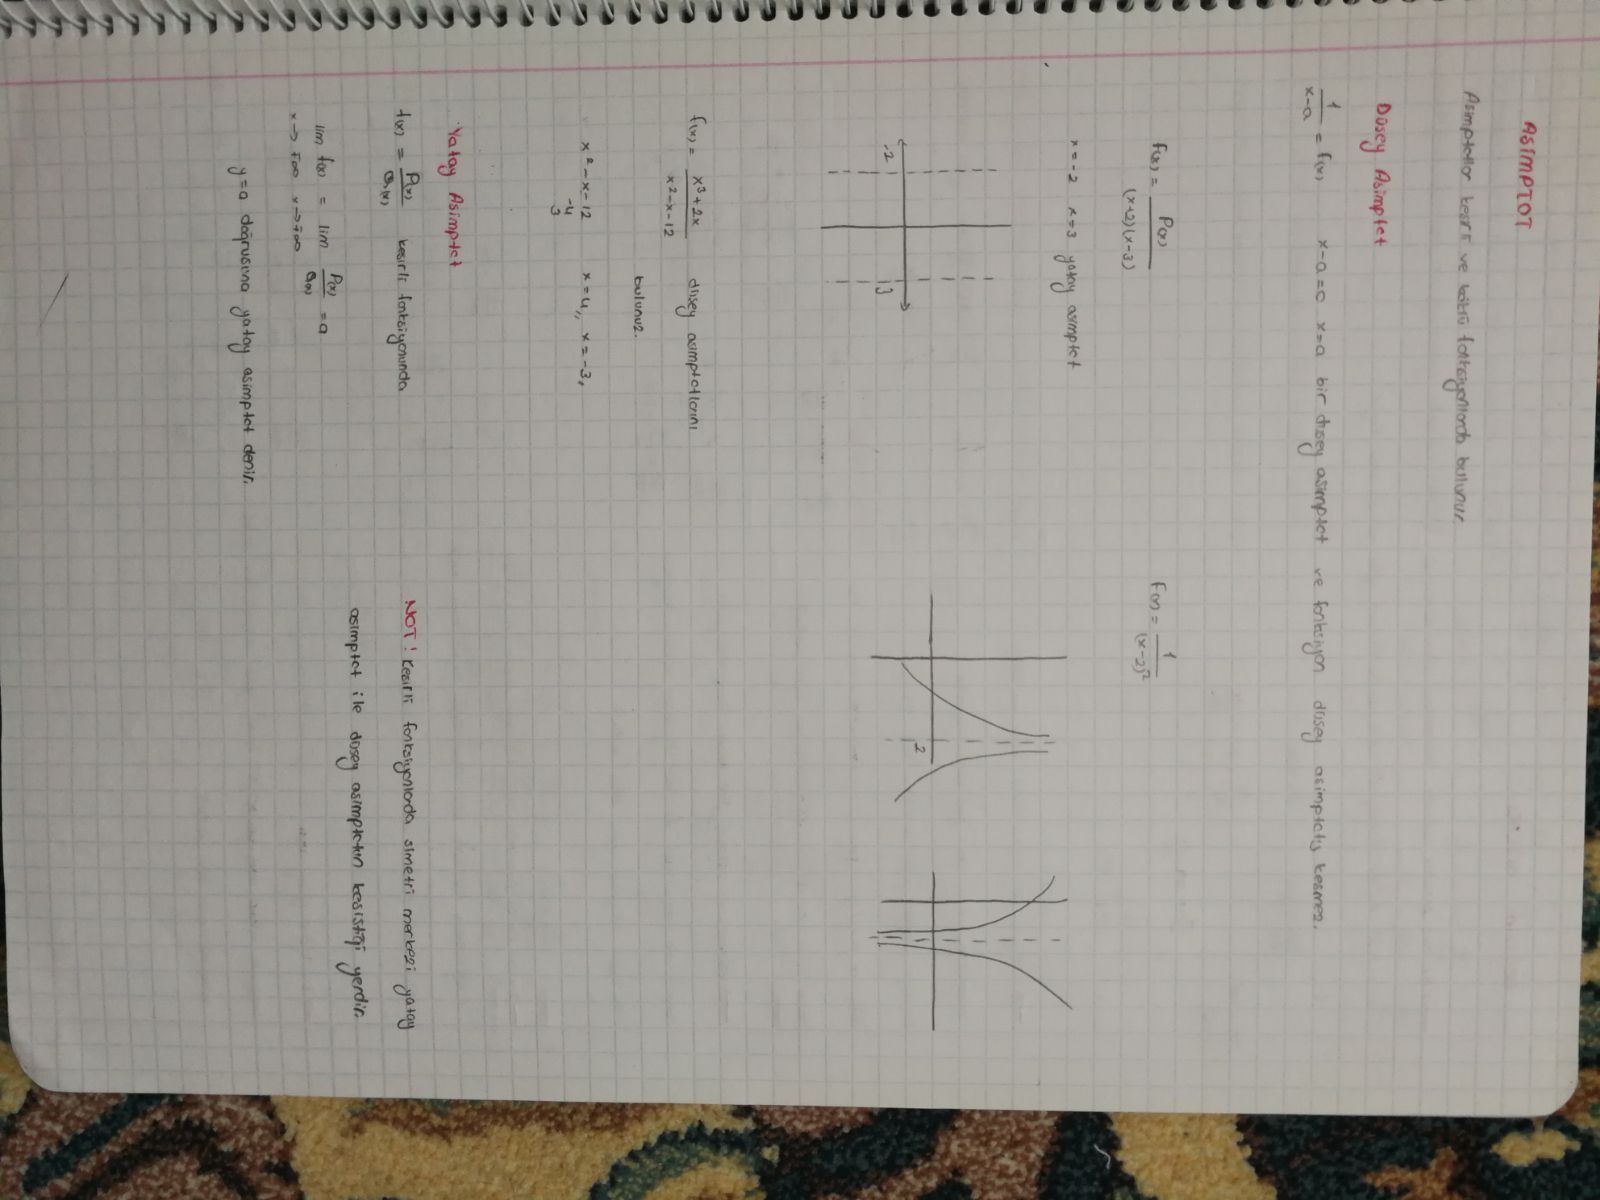 ASİMPTOT
Asimptotlar kesirli ve köklü fonksiyonlarda bulunur.
Düşey Asimptot
1/(x-a) = f(x)   x-a=0  x=a bir düşey asimptot ve fonksiyon düşey asimptotu kesmez.
f(x) = P(x)/((x+2)(x-3))
x=-2  x=3 yatay asimptot
-2  3
f(x) = 1/(x-2)²
2
f(x) = (x³+2x)/(x²-x-12)  düşey asimptotlarını
bulunuz.
x²-x-12   x=4,, x=-3,
-4
3
Yatay Asimptot
f(x) = P(x)/Q(x)  kesirli fonksiyonunda
lim f(x) = lim P(x)/Q(x) = a
x→∓∞  x→∓∞
y=a doğrusuna yatay asimptot denir.
NOT! Kesirli fonksiyonlarda simetri merkezi yatay
asimptot ile düşey asimptotun kesiştiği yerdir.